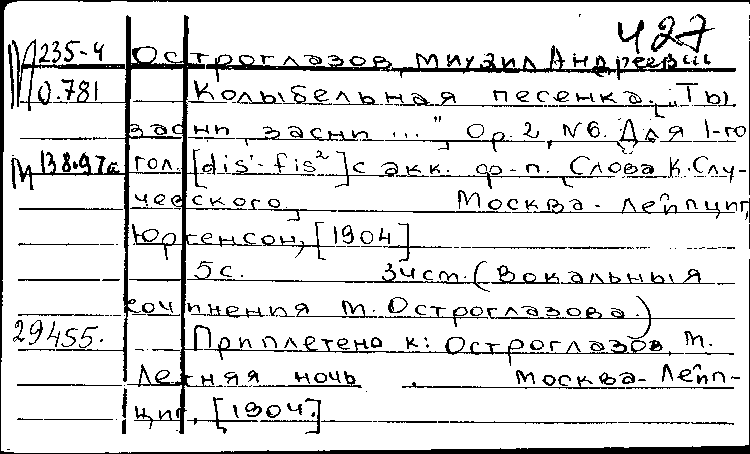 427
М 235-4 Остроглазов, Михаил Андреевич
0.781 Колыбельная песенка. "Ты
засни, засни ...", Op. 2, №6. Для 1-го
М 138.97а гол. [dis'-fis²] с акк. ф-п. Слова К. Слу-
чевского. Москва-Лейпциг,
Юргенсон, [1904]
5 с. 34см. (Вокальныя
сочинения М. Остроглазова.)
29455. Приплетено к: Остроглазов, М.
Летняя ночь. Москва-Лейп-
циг, [1904.]